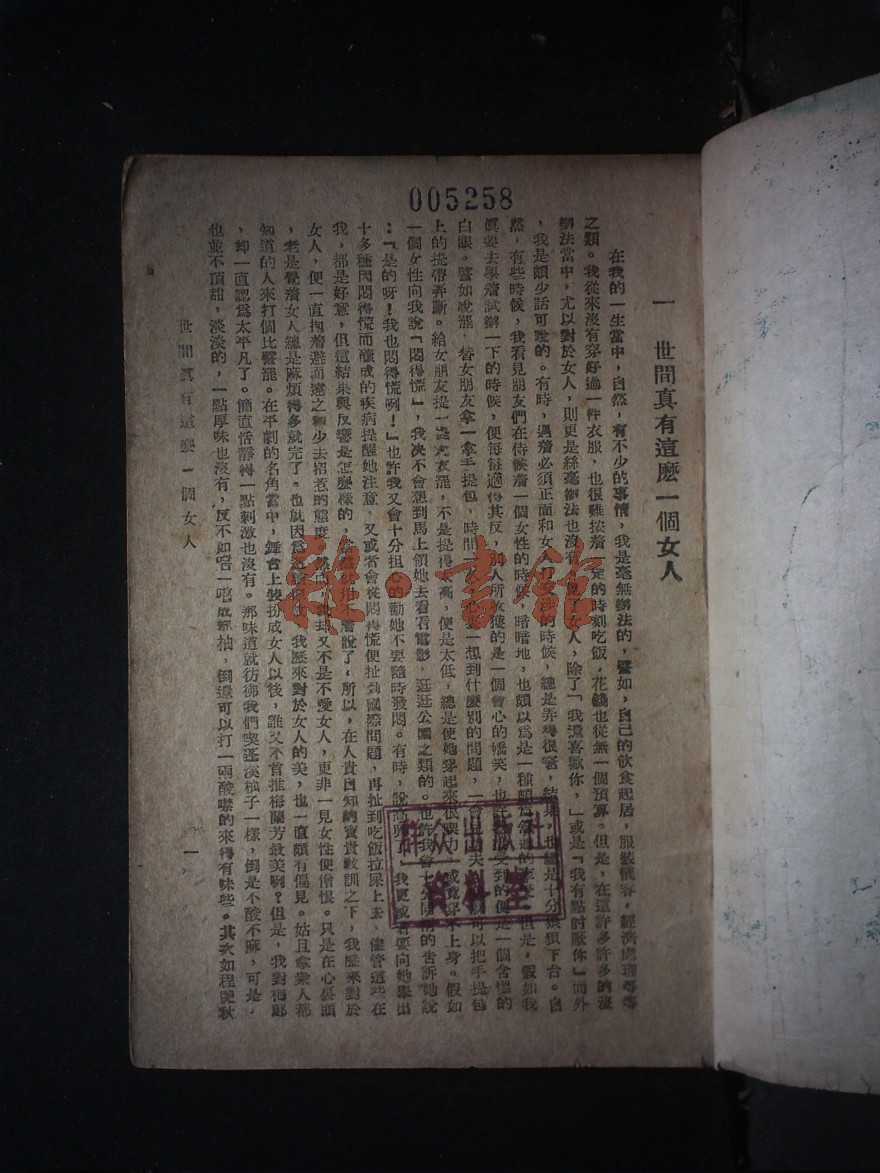 005258
一　世間真有這麽一個女人
在我的一生當中，自然，有不少的事情，我是毫無辦法的，譬如，自己的飲食起居，服裝儀容，經濟處理等等
之類。我從來沒有穿好過一件衣服，也很難按着一定的時刻吃飯，花錢也從無一個預算。但是，在這許多許多的沒
辦法當中，尤以對於女人，則更是絲毫辦法也沒有。見了女人，除了「我還喜歡你，」或是「我有點討厭你」而外
，我是頗少話可說的。有時，遇着必須正面和女人的時候，總是弄得很窘，結果，也總是十分狼狽下台。自
然，有些時候，我看見朋友們在侍候着一個女性的時候，暗暗地，也頗以爲是一種頗爲的但是，假如我
眞要去學着試辦一下的時候，便每每適得其反，別人所收獲的是一個會心的嬌笑，也受到的便是一個含慍的
白眼。譬如說罷，替女朋友拿一拿手提包，時間一想到什麽別的問題，一可以把手提包
上的提帶弄斷。給女朋友提一提大衣罷，不是提得太高，便是太低，總是使她穿起來很喫力，或竟穿不上身。假如
一個女性向我說「悶得慌」，我决不會想到馬上領她去看看電影，逛逛公園之類的。也許我會十分同情的告訴她說
：「是的呀！我也悶得慌咧！」也許我又會十分担心的勸她不要隨時發悶。有時，說高興了，我更或者要向她舉出
十多種因悶得慌而釀成的疾病提醒她注意，又或者會從悶得慌便扯到國際問題，再扯到吃飯拉屎上去，儘管這些在
我，都是好意，但這結果與反響是怎麽樣的，着說了。所以，在人貴自知的寶貴教訓之下，我歷來對於
女人，便一直抱着避而遠之和少去招惹的態度。却又不是不愛女人，更非一見女性便憎恨。只是在心裏頭
，老是覺着女人總是麻煩得多就完了。也就因爲這我歷來對於女人的美，也一直頗有偏見。姑且拿衆人都
知道的人來打個比譬罷。在平劇的名角當中，舞台上裝扮成女人以後，誰又不首推梅蘭芳最美咧？但是，我對梅郎
，却一直認爲太平凡了。簡直恬靜得一點刺激也沒有。那味道就彷彿我們喫蓬溪柚子一樣，倒是不酸不麻，可是，
也並不頂甜，淡淡的，一點厚味也沒有，反不如嘗一嘗柚，倒還可以打一兩酸噤的來得有味些。其次如程艷秋
世間真有這麽一個女人
一
雜·書館
群众出版社
資料室